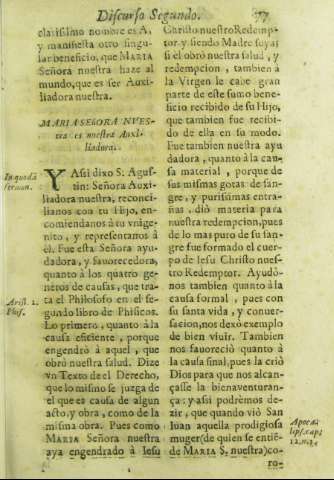 Discurso Segundo. 77
clarissimo nombre es A,
y manifiesta otro singu-
lar beneficio, que MARIA
Señora nuestra haze al
mundo, que es ser Auxi-
liadora nuestra.
MARIA SEñORA NVES-
tra es nuestra Auxi-
liadora.
In quodã
sermon.
Y Assi dixo S. Agus-
tin: Señora Auxi-
liadora nuestra, reconci-
lianos con tu Hijo, en-
comiendanos à tu vnige-
nito, y representanos à
él. Fue esta Señora ayu-
dadora, y favorecedora,
quanto à los quatro ge-
neros de causas, que tra-
Arist. 2.
Phis.
ta el Philosofo en el se-
gundo libro de Phisicos.
Lo primero, quanto à la
causa eficiente, porque
engendrò à aquel, que
obrò nuestra salud. Dize
vn Texto de el Derecho,
que lo mismo se juzga de
el que es causa de algun
acto, y obra, como de la
misma obra. Pues como
MARIA Señora nuestra
aya engendrado à Iesu
Christo nuestro Redemp-
tor, y siendo Madre suya;
si él obrò nuestra salud, y
redempcion, tambien à
la Virgen le cabe gran
parte de este sumo bene-
ficio recibido de su Hijo,
que tambien fue recibi-
do de ella en su modo.
Fue tambien nuestra ayu
dadora, quanto à la cau-
sa material, porque de
sus mismas gotas de san-
gre, y purissimas entra-
ñas, diò materia para
nuestra redempcion, pues
de lo mas puro de su san-
gre fue formado el cuer-
po de Iesu Christo nues-
tro Redemptor. Ayudò-
nos tambien quanto à la
causa formal, pues con
su santa vida, y conuer-
sacion, nos dexò exemplo
de bien viuir. Tambien
nos fauoreciò quanto à
la causa final, pues la criò
Dios para que nos alcan-
çasse la bienaventuran-
ça: y assi podrèmos de-
zir, que quando viò San
Iuan aquella prodigiosa
Apocali
lips. cap.
muger (de quien se entiẽ-
de MARIA S. nuestra) co-
ro-